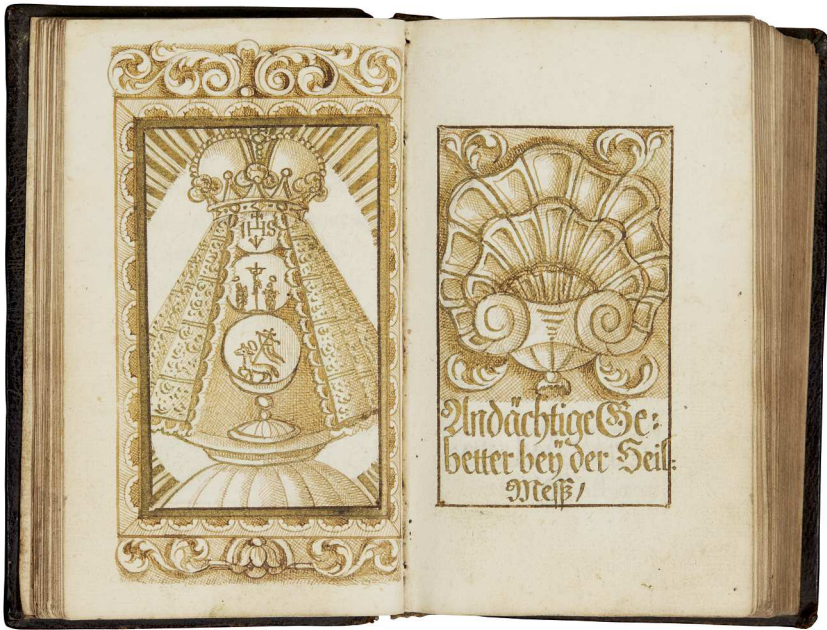 IHS
Andächtige Ge:
better beÿ der Heil:
Mesß/